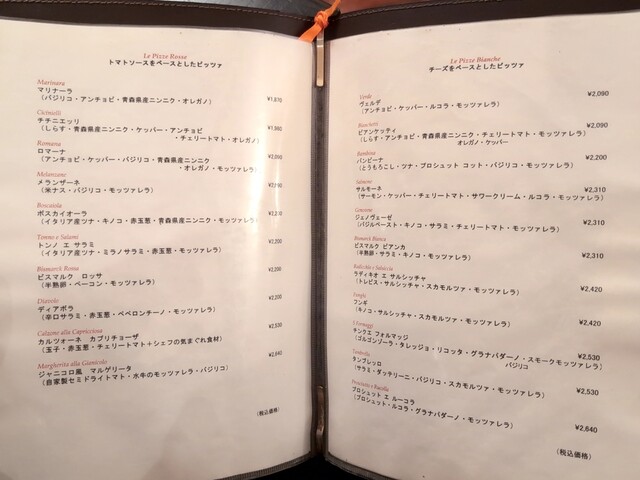 Le Pizze Rosse
トマトソースをベースとしたピッツァ
Marinara
マリナーラ ¥1,870
(バジリコ・アンチョビ・青森県産ニンニク・オレガノ)
Cicinielli
チチニエッリ ¥1,980
(しらす・青森県産ニンニク・ケッパー・アンチョビ
・チェリートマト・オレガノ)
Romana
ロマーナ ¥2,090
(アンチョビ・ケッパー・バジリコ・青森県産ニンニク
・オレガノ・モッツァレラ)
Melanzane
メランザーネ ¥2,090
(米ナス・バジリコ・モッツァレラ)
Boscaiola
ボスカイオーラ
(イタリア産ツナ・キノコ・赤玉葱・青森県産ニンニク・モッツァレラ)
Tonno e Salami
トンノ エ サラミ ¥2,200
(イタリア産ツナ・ミラノサラミ・赤玉葱・モッツァレラ)
Bismarck Rossa
ビスマルク ロッサ ¥2,200
(半熟卵・ベーコン・モッツァレラ)
Diavola
ディアボラ ¥2,200
(辛口サラミ・赤玉葱・ペペロンチーノ・モッツァレラ)
Calzone alla Capricciosa
カルツォーネ カプリチョーザ ¥2,530
(玉子・赤玉葱・チェリートマト+シェフの気まぐれ食材)
Margherita alla Gianicolo
ジャニコロ風 マルゲリータ ¥2,640
(自家製セミドライトマト・水牛のモッツァレラ・バジリコ)
(税込価格)
Le Pizze Bianche
チーズをベースとしたピッツァ
Verde
ヴェルデ ¥2,090
(アンチョビ・ケッパー・ルコラ・モッツァレラ)
Bianchetti
ビアンケッティ ¥2,090
(しらす・アンチョビ・青森県産ニンニク・チェリートマト・モッツァレラ
オレガノ・ケッパー
Bambina
バンビーナ ¥2,200
(とうもろこし・ツナ・プロシュット コット・バジリコ・モッツァレラ)
Salmone
サルモーネ ¥2,310
(サーモン・ケッパー・チェリートマト・サワークリーム・ルコラ・モッツァレラ)
Genovese
ジェノヴェーゼ ¥2,310
(バジルペースト・キノコ・サラミ・チェリートマト・モッツァレラ)
Bismarck Bianca
ビスマルク ビアンカ ¥2,310
(半熟卵・サラミ・キノコ・モッツァレラ)
Radicchio e Salsiccia
ラディキオ エ サルシッチャ ¥2,420
(トレビス・サルシッチャ・スカモルツァ・モッツァレラ)
Funghi
フンギ ¥2,420
(キノコ・サルシッチャ・スカモルツァ・モッツァレラ)
Formaggi
チンクエ フォルマッジ ¥2,530
(ゴルゴンゾーラ・タレッジョ・リコッタ・グラナパダーノ・スモークモッツァレラ)
バジリコ
タンブレッロ ¥2,530
(サラミ・ダッテリーニ・バジリコ・スカモルツァ・モッツァレラ)
Prosciutto e Rucola
プロシュット エ ルーコラ ¥2,640
(プロシュット・ルコラ・グラナパダーノ・モッツァレラ)
(税込価格)